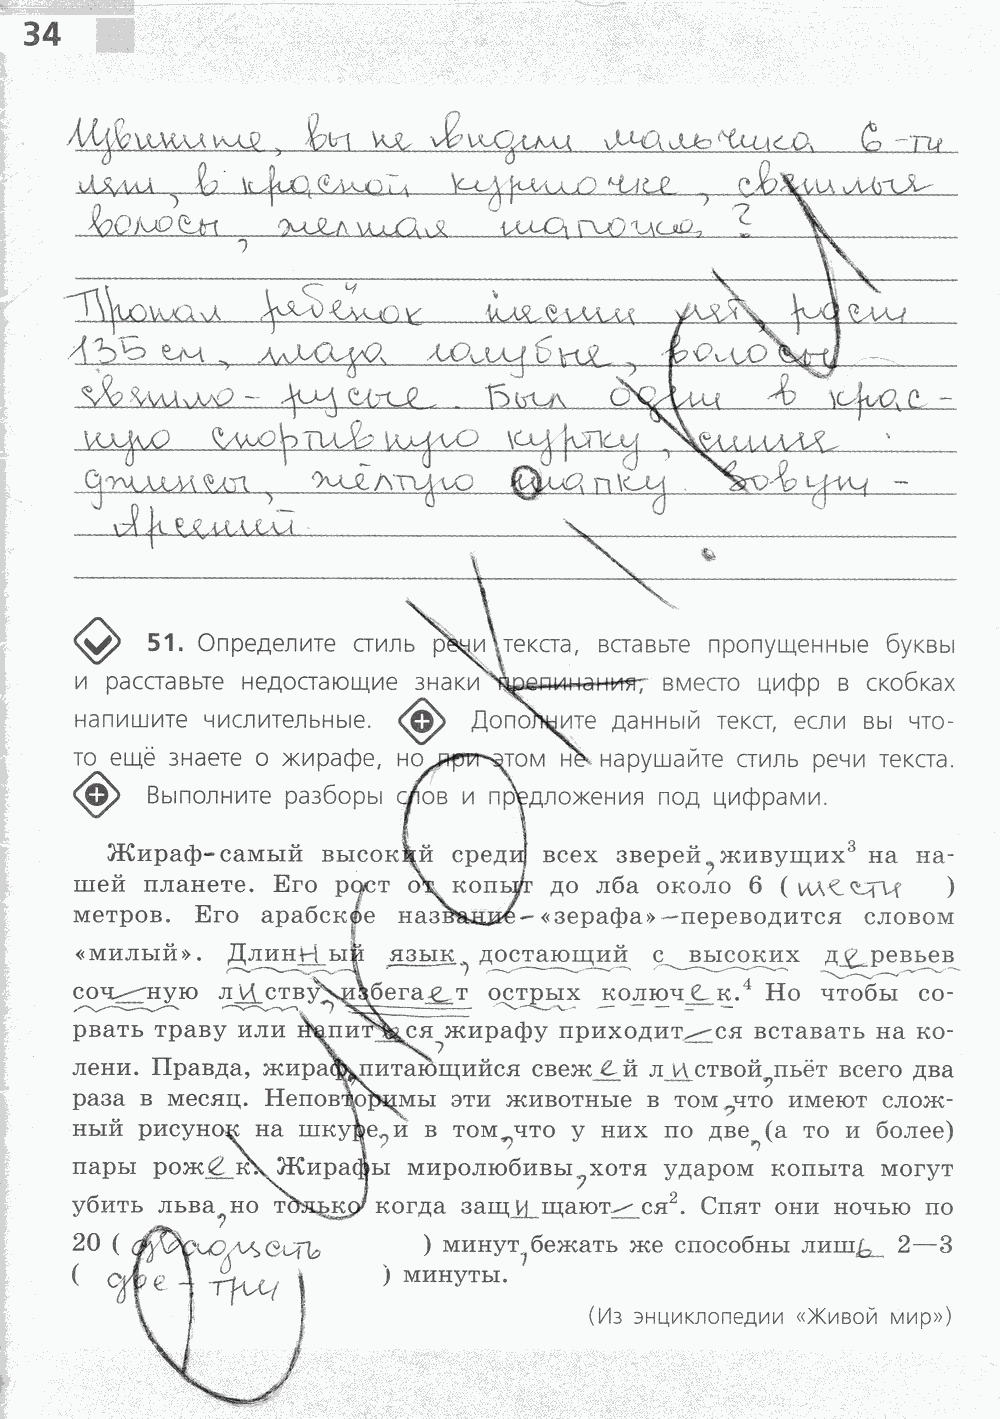 34
Извините, вы не видели мальчика 6-ти
лет, в красной курточке, светлые
волосы, желтая шапочка?
Пропал ребёнок шести лет, рост
135 см, глаза голубые, волосы
светло-русые. Был одет в крас-
ную спортивную куртку, синие
джинсы, жёлтую шапку. Зовут -
Арсений.
51. Определите стиль речи текста, вставьте пропущенные буквы
и расставьте недостающие знаки препинания, вместо цифр в скобках
напишите числительные. Дополните данный текст, если вы что-
то ещё знаете о жирафе, но при этом не нарушайте стиль речи текста.
Выполните разборы слов и предложения под цифрами.
Жираф-самый высокий среди всех зверей, живущих³ на на-
шей планете. Его рост от копыт до лба около 6 (шести )
метров. Его арабское название-«зерафа»-переводится словом
«милый». Длинный язык, достающий с высоких деревьев
соч_ную листву, избегает острых колючек.⁴ Но чтобы со-
рвать траву или напиться, жирафу приходит_ся вставать на ко-
лени. Правда, жираф, питающийся свежей листвой, пьёт всего два
раза в месяц. Неповторимы эти животные в том, что имеют слож-
ный рисунок на шкуре, и в том, что у них по две, (а то и более)
пары рожек. Жирафы миролюбивы, хотя ударом копыта могут
убить льва, но только когда защищают_ся². Спят они ночью по
20 ( двадцать ) минут, бежать же способны лишь 2—3
( две - три ) минуты.
(Из энциклопедии «Живой мир»)